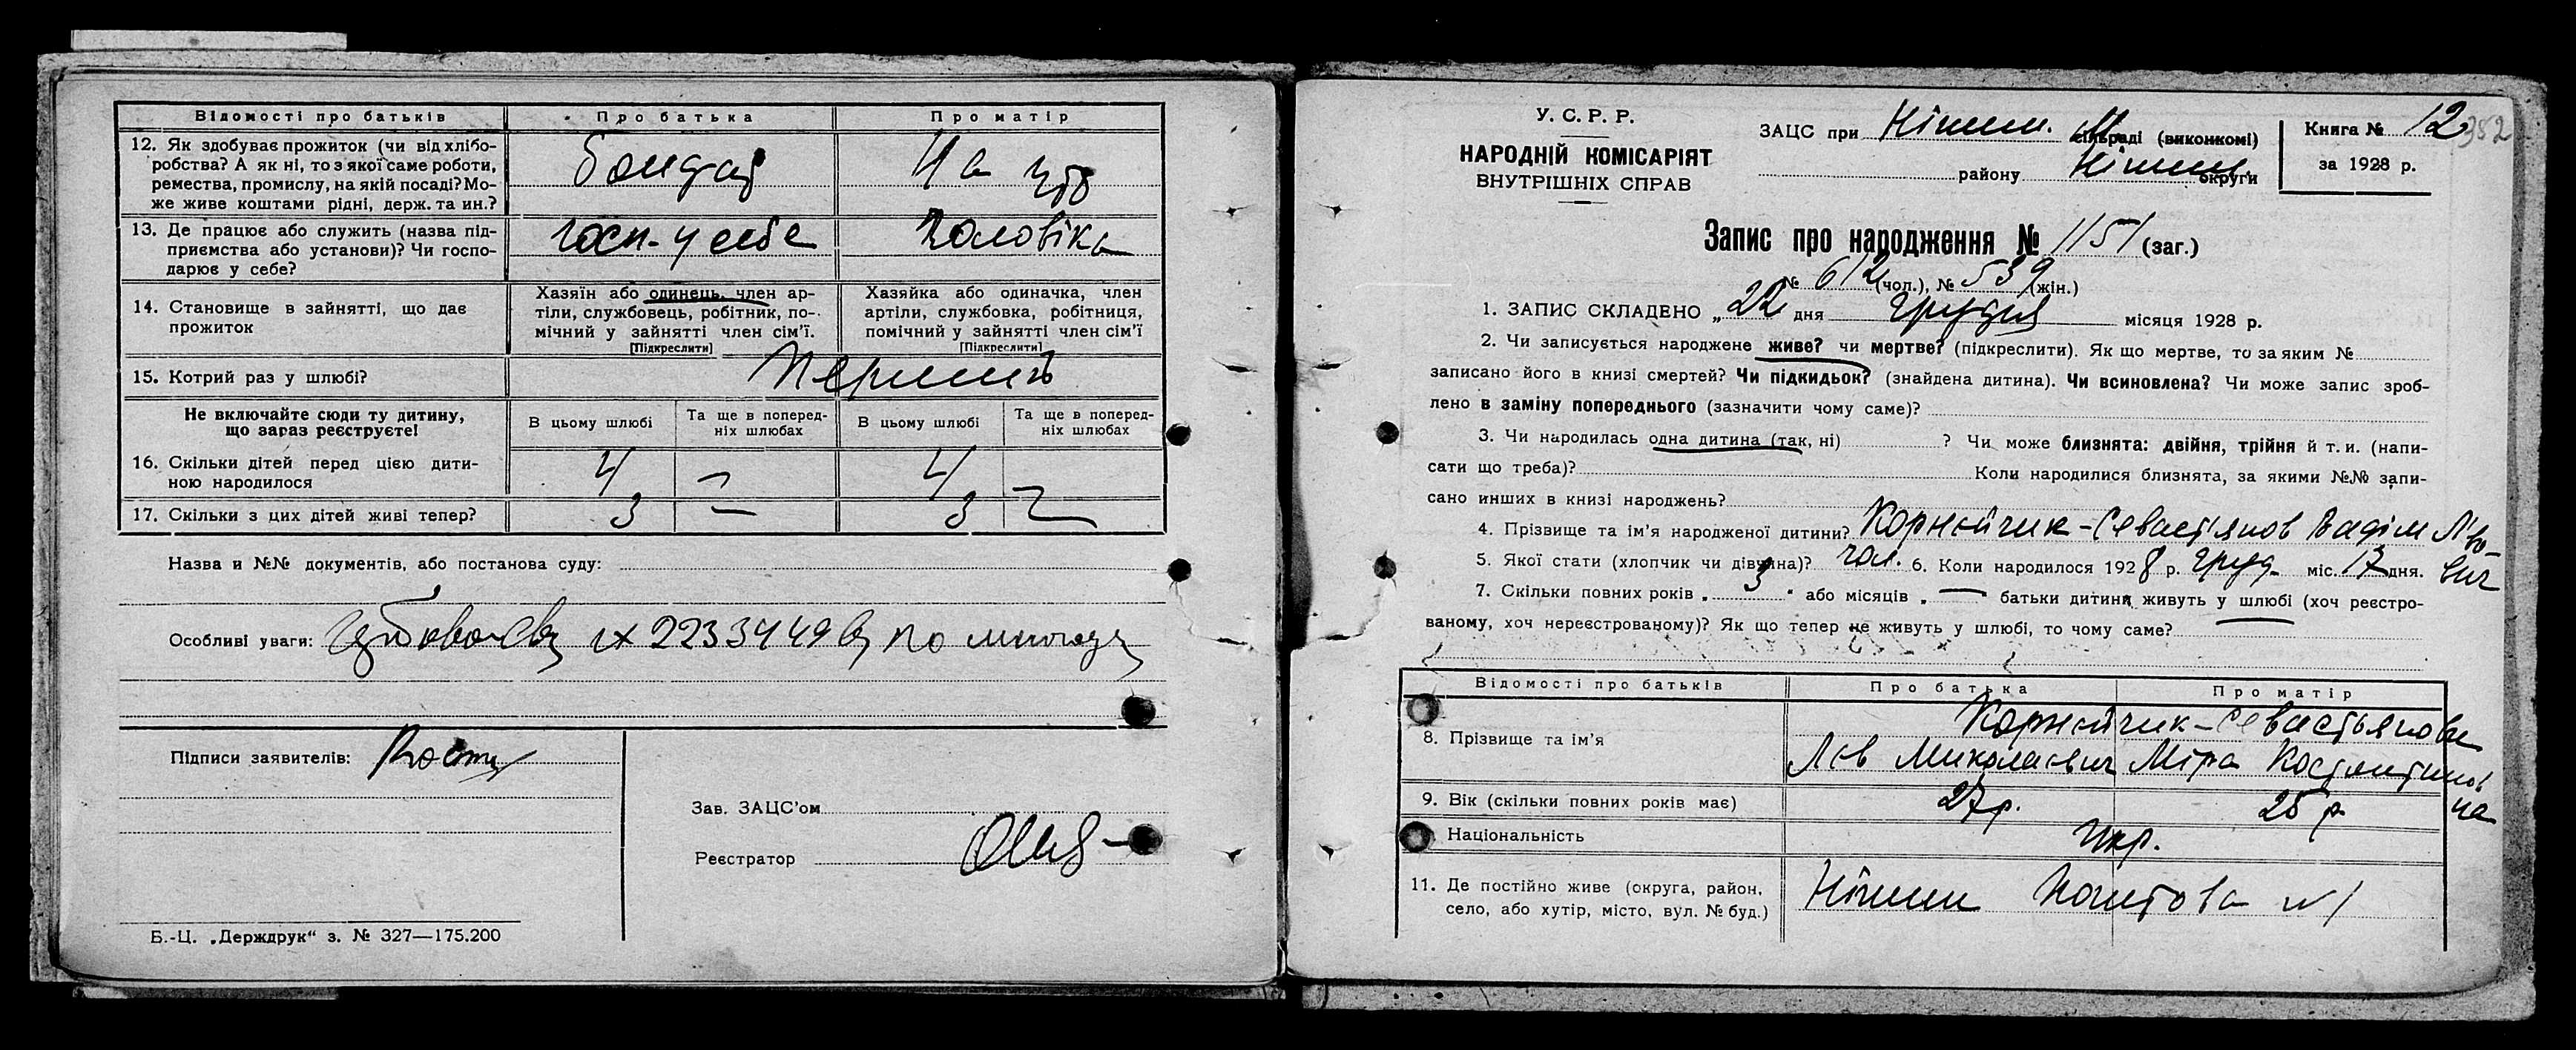 Відомості про батьків Про батька Про матір
12. Як здобуває прожиток (чи від хлібо-
робства? А як ні, то з якої саме роботи,
ремества, промислу, на якій посаді? Мо-
же живе коштами рідні, держ. та ин.?
Бондар На утр
13. Де працює або служить (назва під-
приємства або установи)? Чи госпо-
дарює у себе?
госп- у себе Чоловіка
14. Становище в зайнятті, що дає
прожиток
Хазяїн або одинець, член ар-
тіли, службовець, робітник, по-
мічний у зайнятті член сім'ї.
[Підкреслити]
Хазяйка або одиначка, член
артіли, службовка, робітниця,
помічний у зайнятті член сім'ї
[Підкреслити]
15. Котрий раз у шлюбі? Перший
Не включайте сюди ту дитину,
що зараз реєструєте!
В цьому шлюбі Та ще в поперед-
ніх шлюбах В цьому шлюбі Та ще в поперед-
ніх шлюбах
16. Скільки дітей перед цією дити-
ною народилося 4 — 4
17. Скільки з цих дітей живі тепер? 3 — 3 —
Назва и №№ документів, або постанова суду:
Особливі уваги: 2233449
Підписи заявителів:
Зав. ЗАЦС'ом
Реєстратор
Б.-Ц. „Держдрук“ з. № 327—175.200
У. С. Р. Р.
НАРОДНІЙ КОМІСАРІЯТ
ВНУТРІШНІХ СПРАВ
ЗАЦС при Ніжин. М сільраді (виконкомі)
району Ніжин. округи
Книга № 12
за 1928 р.
352
Запис про народження № 1151 (заг.)
№ 612 (чол.), № 539 (жін.)
1. ЗАПИС СКЛАДЕНО „22 дня Грудня місяця 1928 р.
2. Чи записується народжене живе? чи мертве? (підкреслити). Як що мертве, то за яким №
записано його в книзі смертей? Чи підкидьок? (знайдена дитина). Чи всиновлена? Чи може запис зроб-
лено в заміну попереднього (зазначити чому саме)?
3. Чи народилась одна дитина (так, ні) ? Чи може близнята: двійня, трійня й т. и. (напи-
сати що треба)? Коли народилися близнята, за якими №№ запи-
сано инших в книзі народжень?
4. Прізвище та ім'я народженої дитини? Корнєйчик-Севастьянов Вадім Льво-
вич
5. Якої стати (хлопчик чи дівчина)? чол. 6. Коли народилося 1928 р. груд. міс. 17 дня.
7. Скільки повних років „ 3 “ або місяців „ — батьки дитини живуть у шлюбі (хоч реєстро-
ваному, хоч нереєстрованому)? Як що тепер не живуть у шлюбі, то чому саме?
Відомості про батьків Про батька Про матір
8. Прізвище та ім'я
Корнєйчик-Севастьянови
Лєв Миколаєвич Міра Костянтинов
на
9. Вік (скільки повних років має) 27 р. 25 р.
Національність Укр.
11. Де постійно живе (округа, район,
село, або хутір, місто, вул. № буд.)
Ніжин Поштова №1